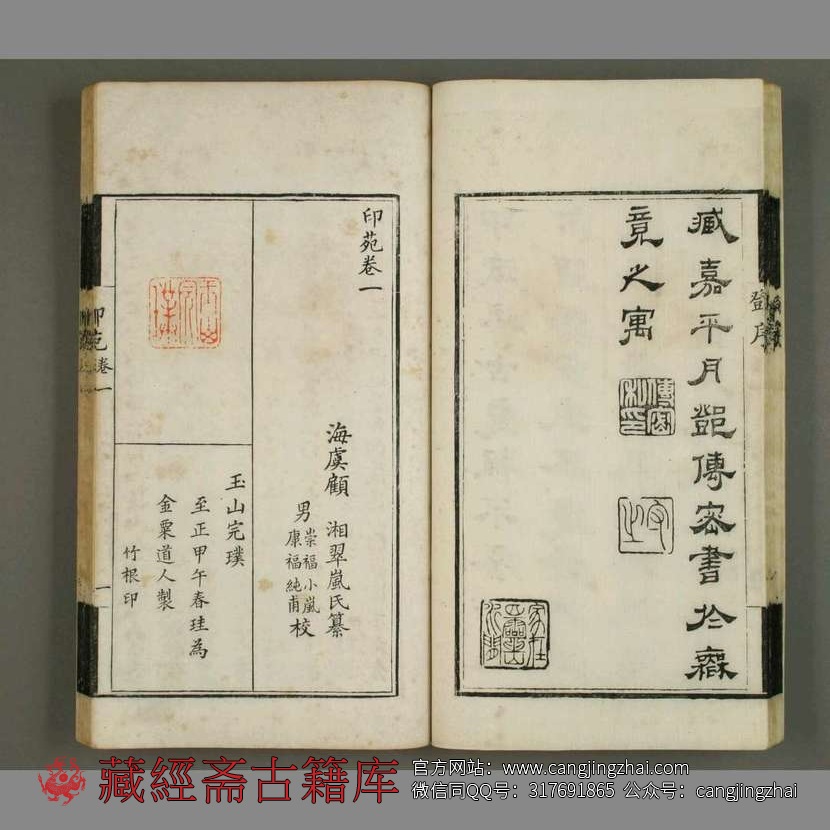 臧嘉平月鄧傳密書於
竟之寓
家在
靈山
印苑卷一
海虞顧湘翠嵐氏纂
男崇福小嵐
康福純甫校
玉山完璞
玉山完璞
至正甲午春珪為
金粟道人製
竹根印
印苑
卷一
一
藏經斋古籍库
官方网站：www.cangjingzhai.com
微信同QQ号：317691865 公众号：cangjingzhai